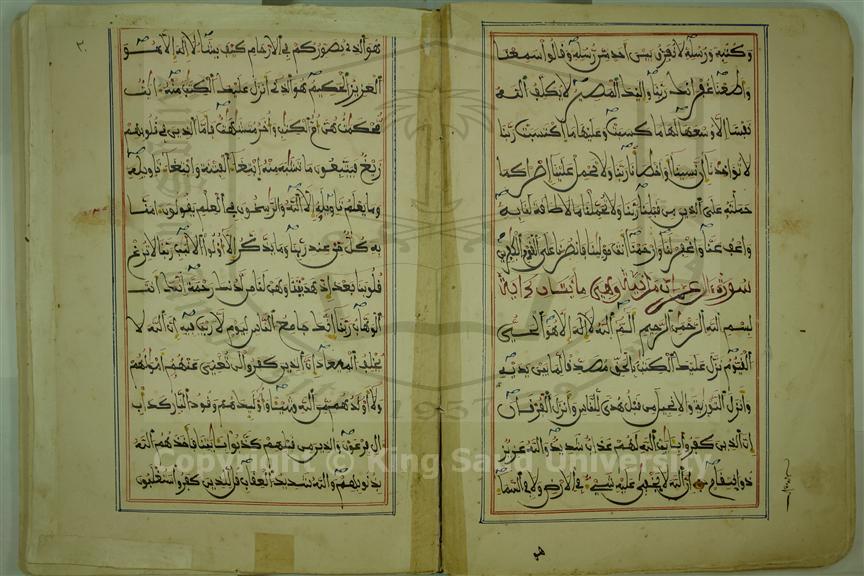 وكتبه ورسله لا نفرق بين أحد من رسله وقالوا سمعنا
وأطعنا غفرانك ربنا وإليك المصير لا يكلف الله
نفسا إلا وسعها لها ما كسبت وعليها ما اكتسبت ربنا
لا تؤاخذنا إن نسينا أو اخطأنا ربنا ولا تحمل علينا إصرا كما
حملته على الذين من قبلنا ربنا ولا تحملنا ما لا طاقة لنا به
واعف عنا واغفر لنا وارحمنا أنت مولينا فانصرنا على القوم الكفرين
سورة ال عمران مدنية وهي مايتان اية
بسم الله الرحمن الرحيم الم الله لا إله إلا هو الحي
القيوم نزل عليك الكتب بالحق مصدقا لما بين يديه
وأنزل التورية والانجيل من قبل هدى للناس وأنزل الفرقان
إن الذين كفروا بايت الله لهم عذاب شديد والله عزيز
ذو انتقام إن الله لا يخفى عليه شيء في الارض ولا في السماء
هو
هو الذي يصوركم في الارحام كيف يشاء لا إله إلا هو
العزيز الحكيم هو الذي أنزل عليك الكتب منه ايت
محكمت هن أم الكتب وأخر متشبهت فأما الذين في قلوبهم
زيغ فيتبعون ما تشبه منه ابتغاء الفتنة وابتغاء تاويله
وما يعلم تاويله إلا الله والراسخون في العلم يقولون امنا
به كل من عند ربنا وما يذكر إلا أولوا الالبب ربنا لا تزغ
قلوبنا بعد إذ هديتنا وهب لنا من لدنك رحمة إنك أنت
الوهاب ربنا إنك جامع الناس ليوم لا ريب فيه إن الله لا
يخلف الميعاد إن الذين كفروا لن تغني عنهم أمولهم
ولا أولدهم من الله شيئا وأولئك هم وقود النار كدأب
ال فرعون والذين من قبلهم كذبوا بايتنا فأخذهم الله
بذنوبهم والله شديد العقاب قل للذين كفروا ستغلبون
1957
Copyright © King Saud University